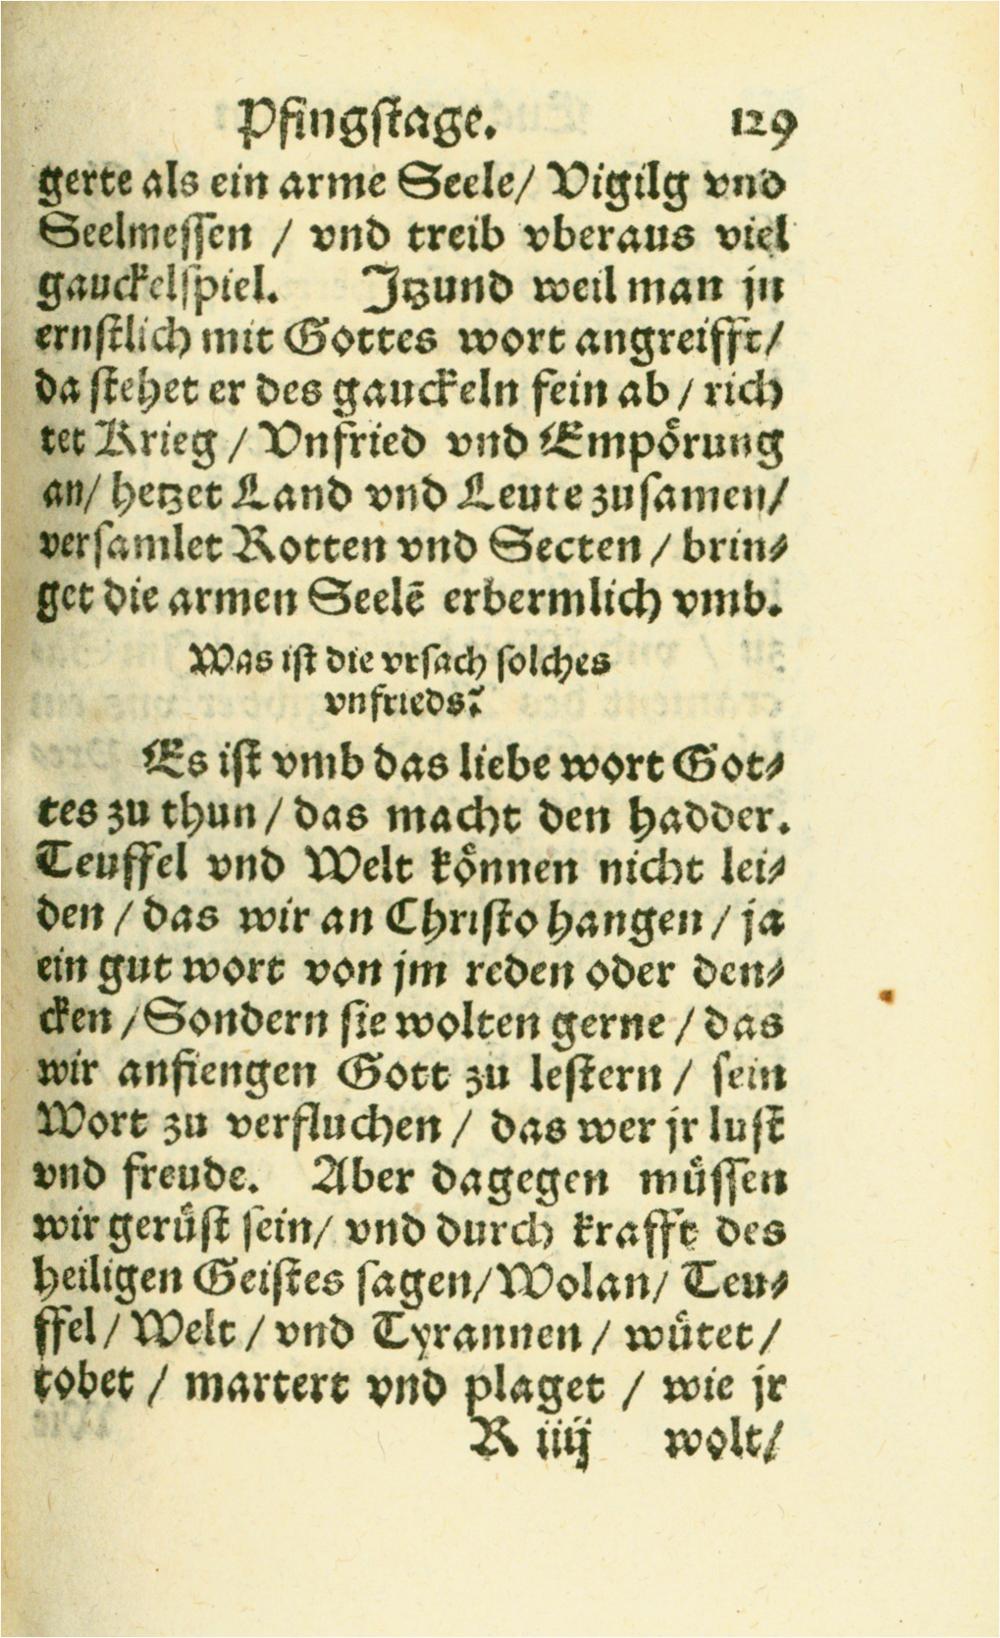 Pfingstage. 129
gerte als ein arme Seele/ Vigilg vnd
Seelmessen / vnd treib vberaus viel
gauckelspiel. Jtzund weil man jn
ernstlich mit Gottes wort angreifft/
da stehet er des gauckeln fein ab / rich
tet Krieg / Vnfried vnd Empörung
an/ hetzet Land vnd Leute zusamen/
versamlet Rotten vnd Secten / brin⸗
get die armen Seelē erbermlich vmb.
Was ist die vrsach solches
vnfrieds?
Es ist vmb das liebe wort Got⸗
tes zu thun / das macht den hadder.
Teuffel vnd Welt können nicht lei⸗
den / das wir an Christo hangen / ja
ein gut wort von jm reden oder den⸗
cken / Sondern sie wolten gerne / das
wir anfiengen Gott zu lestern / sein
Wort zu verfluchen / das wer jr lust
vnd freude. Aber dagegen müssen
wir gerüst sein/ vnd durch krafft des
heiligen Geistes sagen/ Wolan/ Teu⸗
ffel / Welt / vnd Tyrannen / wütet /
tobet / martert vnd plaget / wie jr
R iiij wolt/